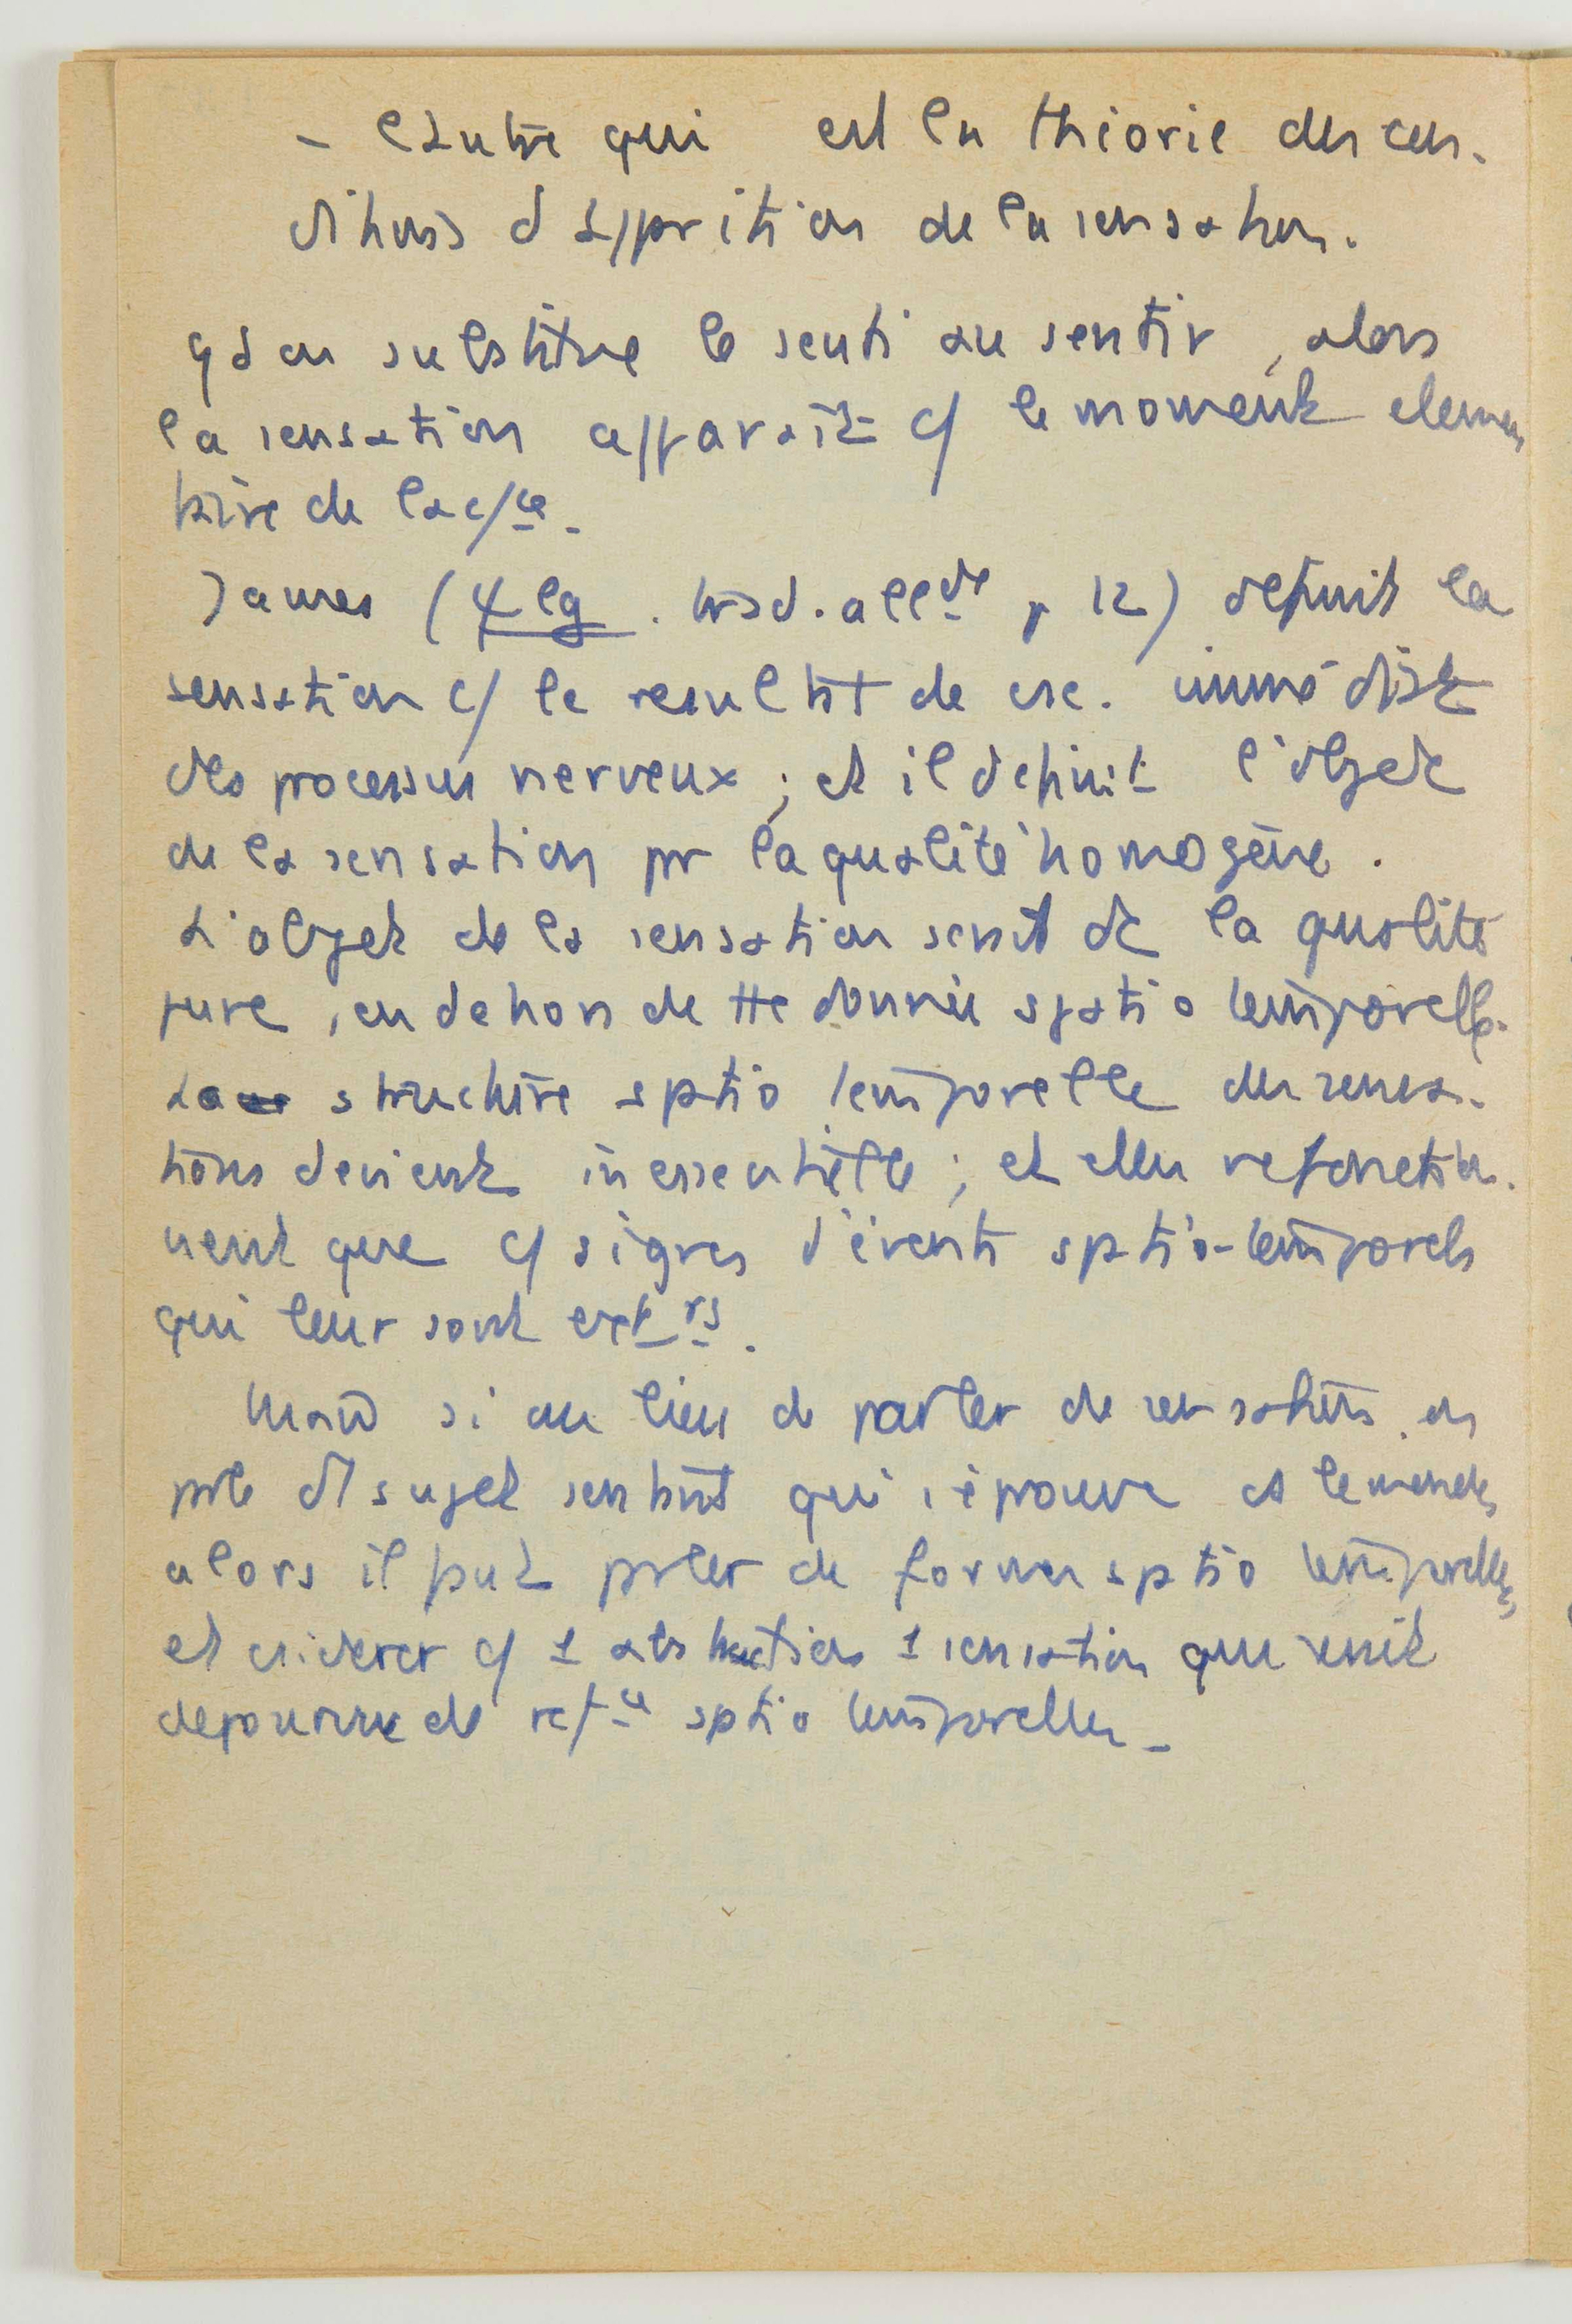 - l'autre qui est la théorie des con-
ditions d'apparition de la sensation.
qd on substitue le senti au sentir, alors
la sensation apparaît c/ le moment elemen
taire de la c/ce.
James (ψlg. trad. allde p 12) definit la
sensation c/ le resultat de csc. immédiate
des processus nerveux ; et il definit l'objet
de la sensation pr la qualité homogène.
L'objet de la sensation serait dc la qualité
pure, en dehors de tte donnée spatio temporelle.
La structure sptio temporelle des sensa-
tions devient inessentielle ; et elles ne fonction-
nent que c/ signes d'événts sptio-temporels
qui leur sont extrs.
Mais si au lieu de parler de sensations, on
prle d'1 sujet sentant qui s'éprouve et le monde,
alors il faut prler de formes sptio temporelles,
et csiderer c/ 1 abstraction 1 sensation qui serait
depourvue de refce sptio temporelles -